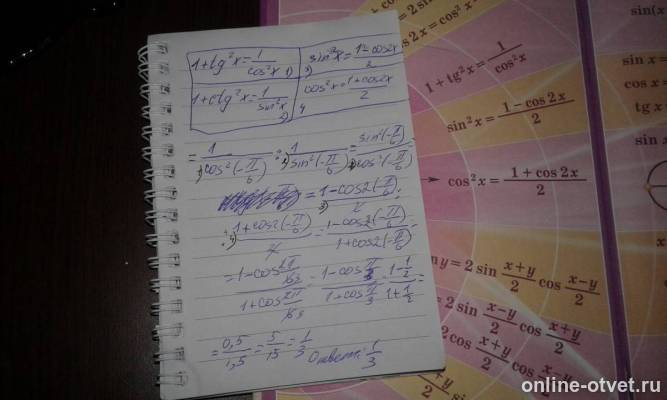 1+tg²x=1/cos²x 1) sin²x=(1-cos2x)/2 3)
1+ctg²x=1/sin²x 2) cos²x=(1+cos2x)/2 4
=1/cos²(-π/6) : 1/sin²(-π/6)=sin²(-π/6)/cos²(-π/6)=
=(1-cos2(-π/6))/2 :
: (1+cos2(-π/6))/2=(1-cos2(-π/6))/(1+cos2(-π/6))=
=(1-cos2π/6)/(1+cos2π/6)=(1-cosπ/3)/(1+cosπ/3)=(1-1/2)/(1+1/2)=
=0,5/1,5=5/15=1/3 Ответ: 1/3
1+tg²x=1/cos²x
sin²x=(1-cos 2x)/2
cos²x=(1+cos 2x)/2
sin(x
sin x =
cos x =
tg x =
ny = 2 sin (x+y)/2 cos (x-y)/2
= 2 sin (x-y)/2 cos (x+y)/2
2 cos (x+y)/2 cos (x-y)/2
online-otvet.ru